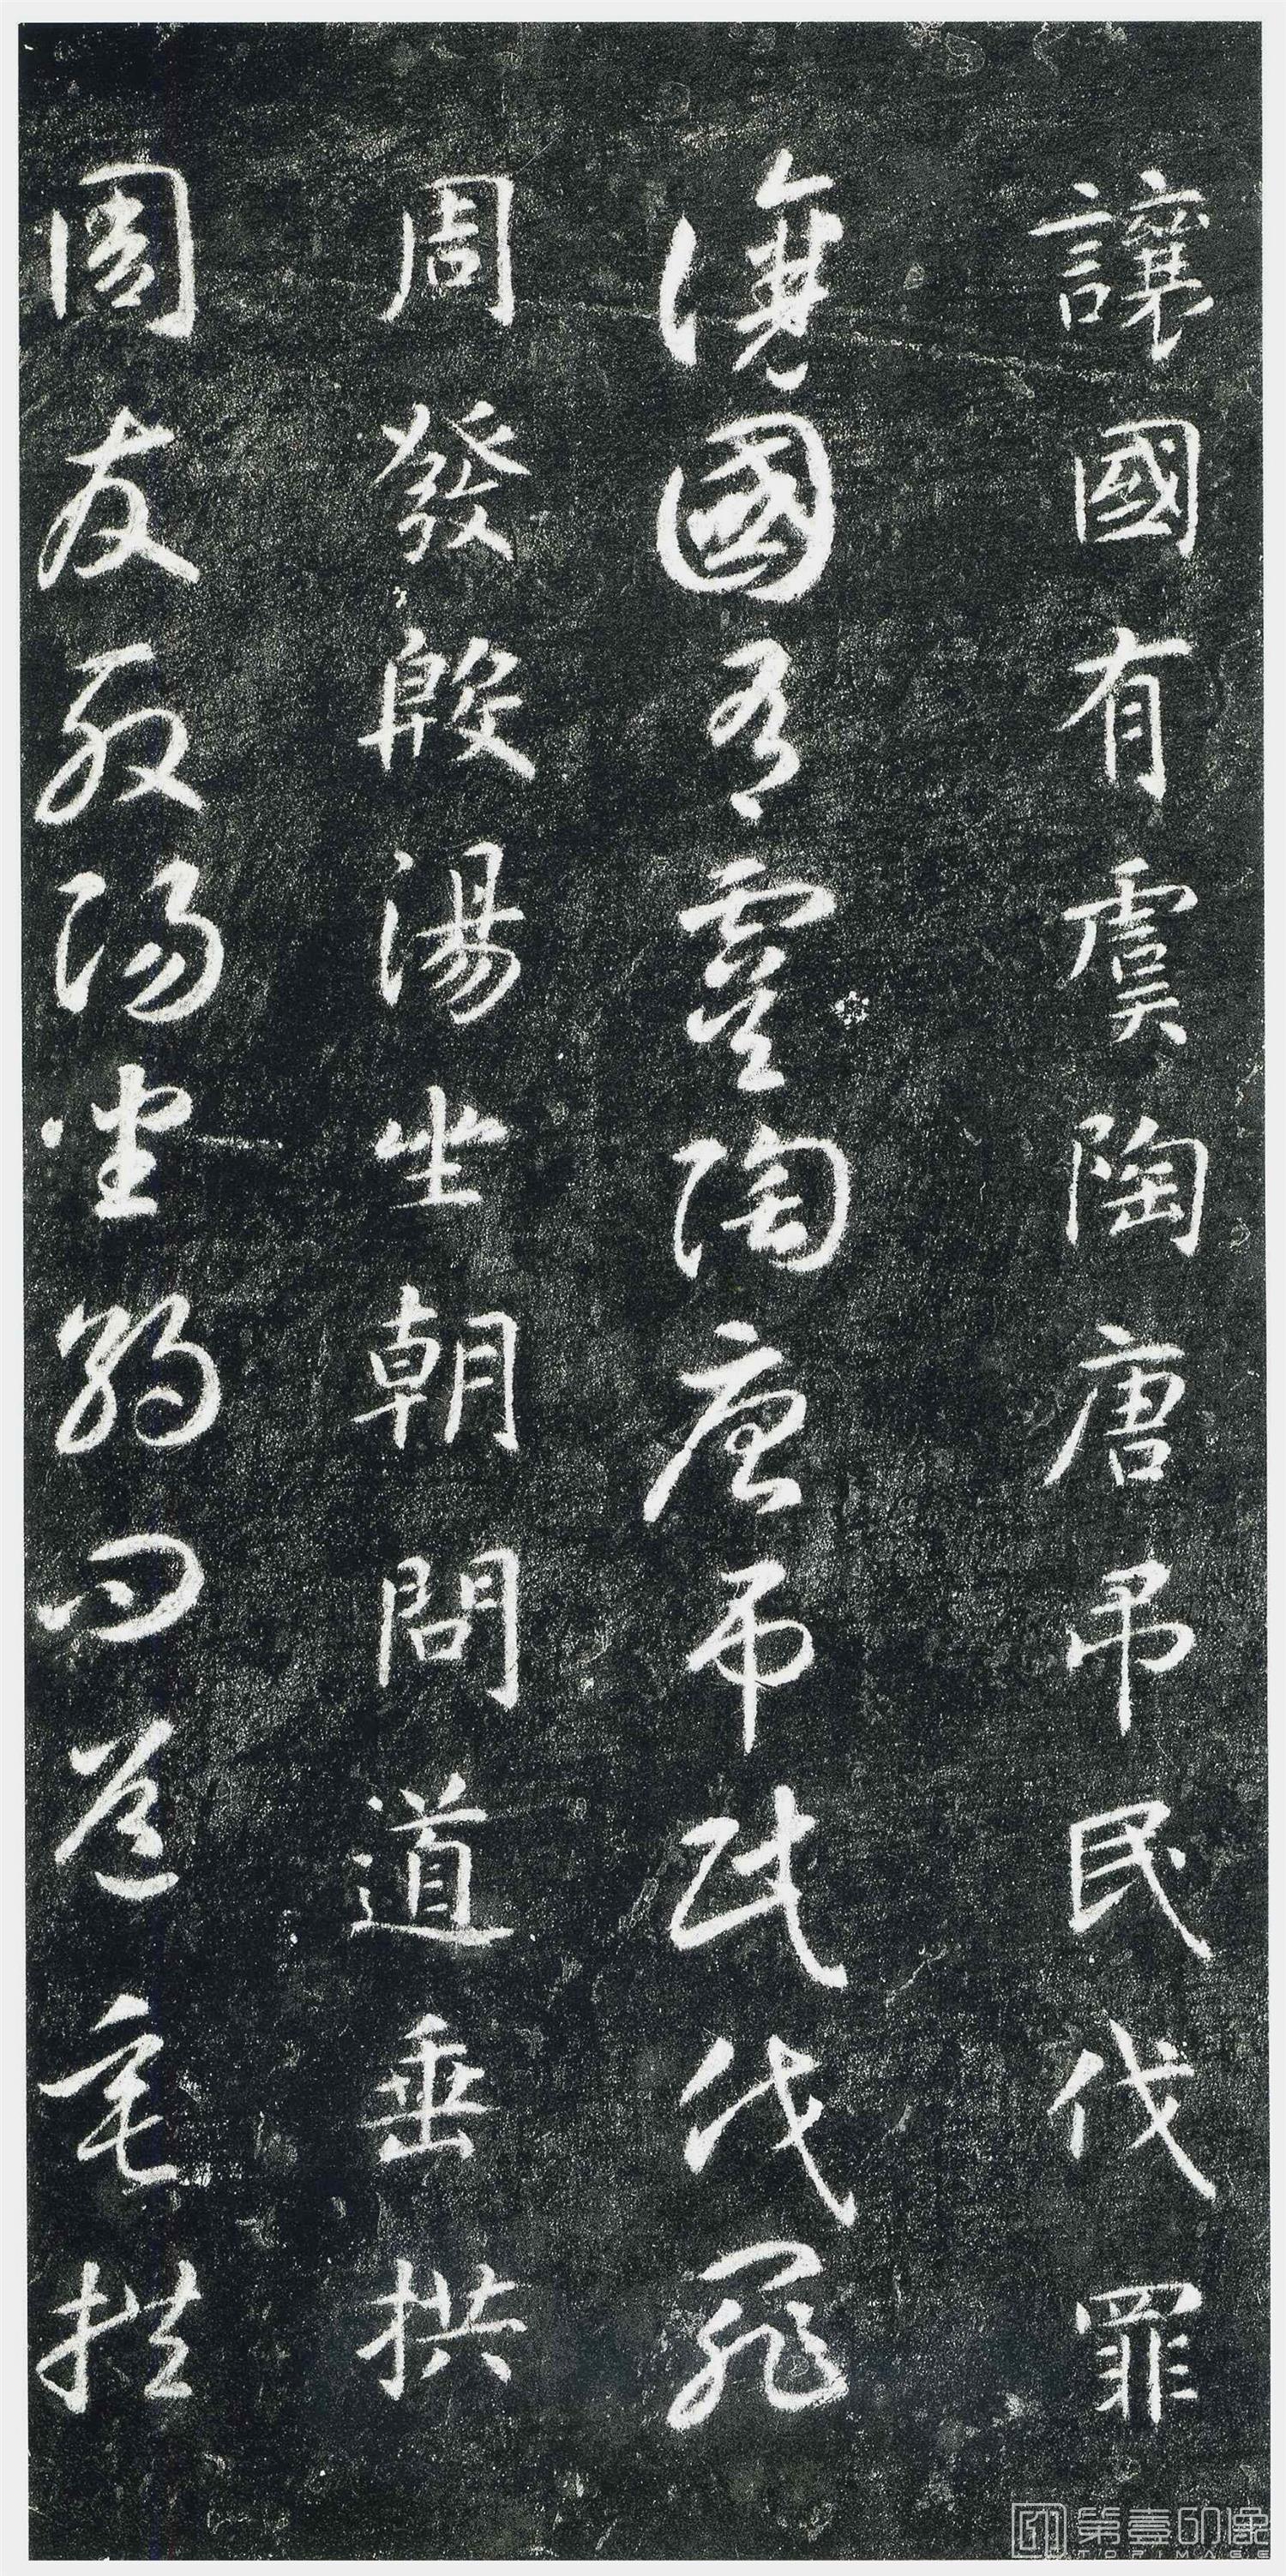 讓國有虞陶唐弔民伐罪
讓國有虞陶唐弔民伐罪
周發殷湯坐朝問道垂拱
周發殷湯坐朝問道垂拱
第壹印像
TOPIMAGE